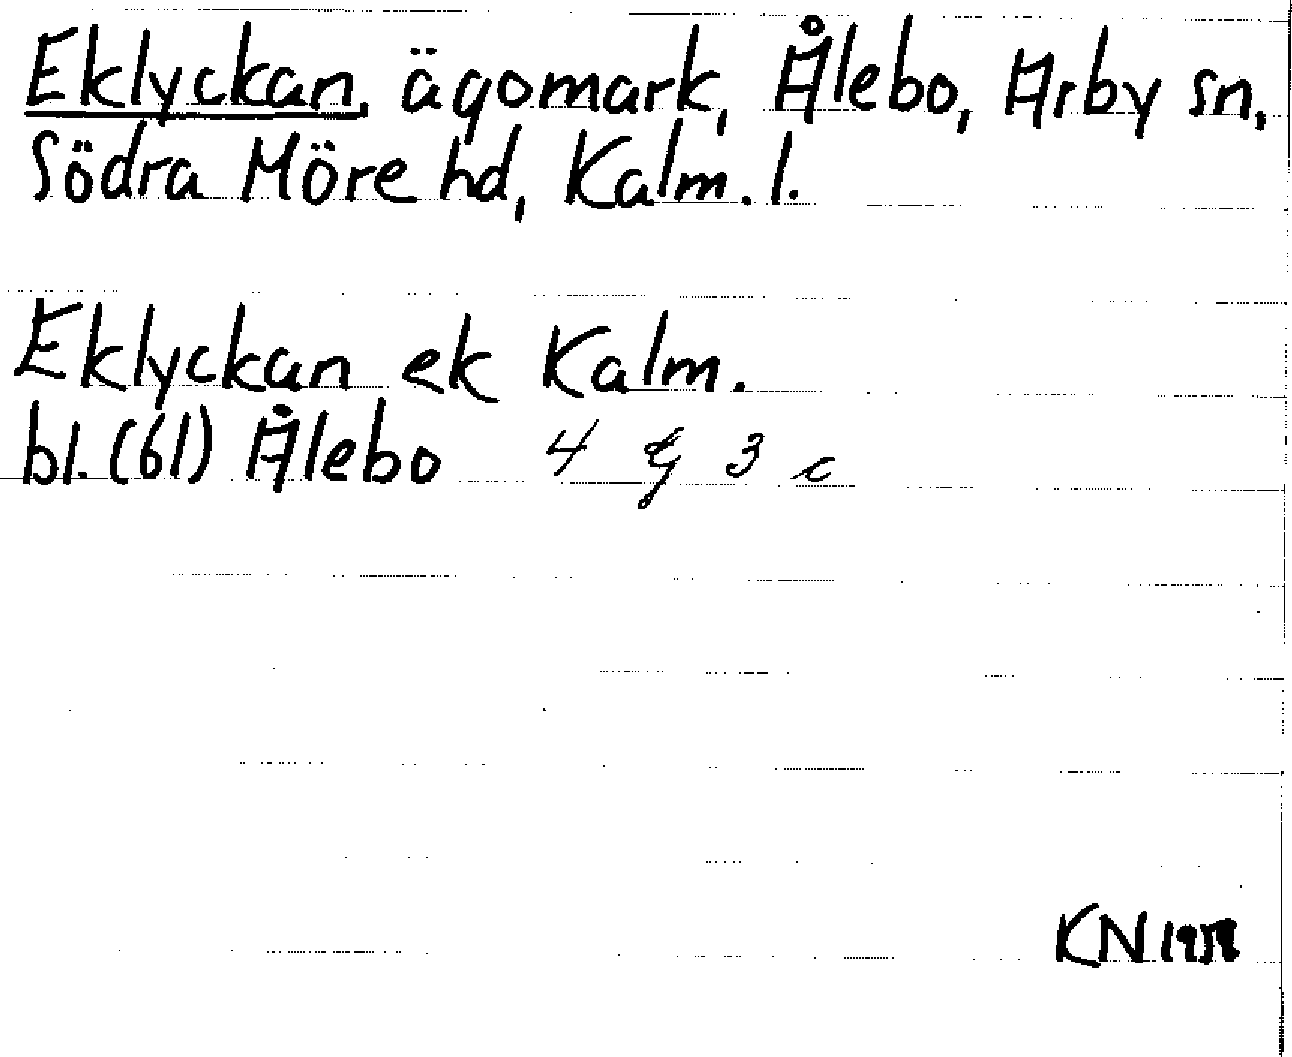 Eklyckan, ägomark, Ålebo, Arby sn,
Södra Möre hd, Kalm. l.
Eklyckan ek Kalm.
bl. (61) Ålebo 4 g 3 c
KN 1958